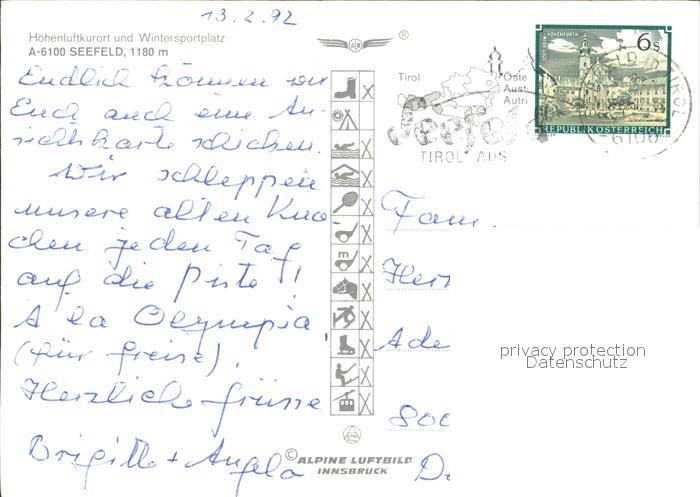 13.2.92
Höhenluftkurort und Wintersportplatz
A-6100 SEEFELD, 1180 m
Endlich können wir
Euch auch eine An-
sichtskarte schicken.
Wir schleppen
unsere alten Kno-
chen jeden Tag
auf die Piste!
A la Olympia
(für Greise).
Herzliche Grüsse
Brigitte + Angela
Tirol
Öste
Aust
Autri
Seefel
TIROL AUS
6100
TIROL
STIFT REIN-HOHENFURTH
6s
REPUBLIK ÖSTERREICH
Fam.
Ade
800
D-
privacy protection
Datenschutz
© ALPINE LUFTBILD
INNSBRUCK